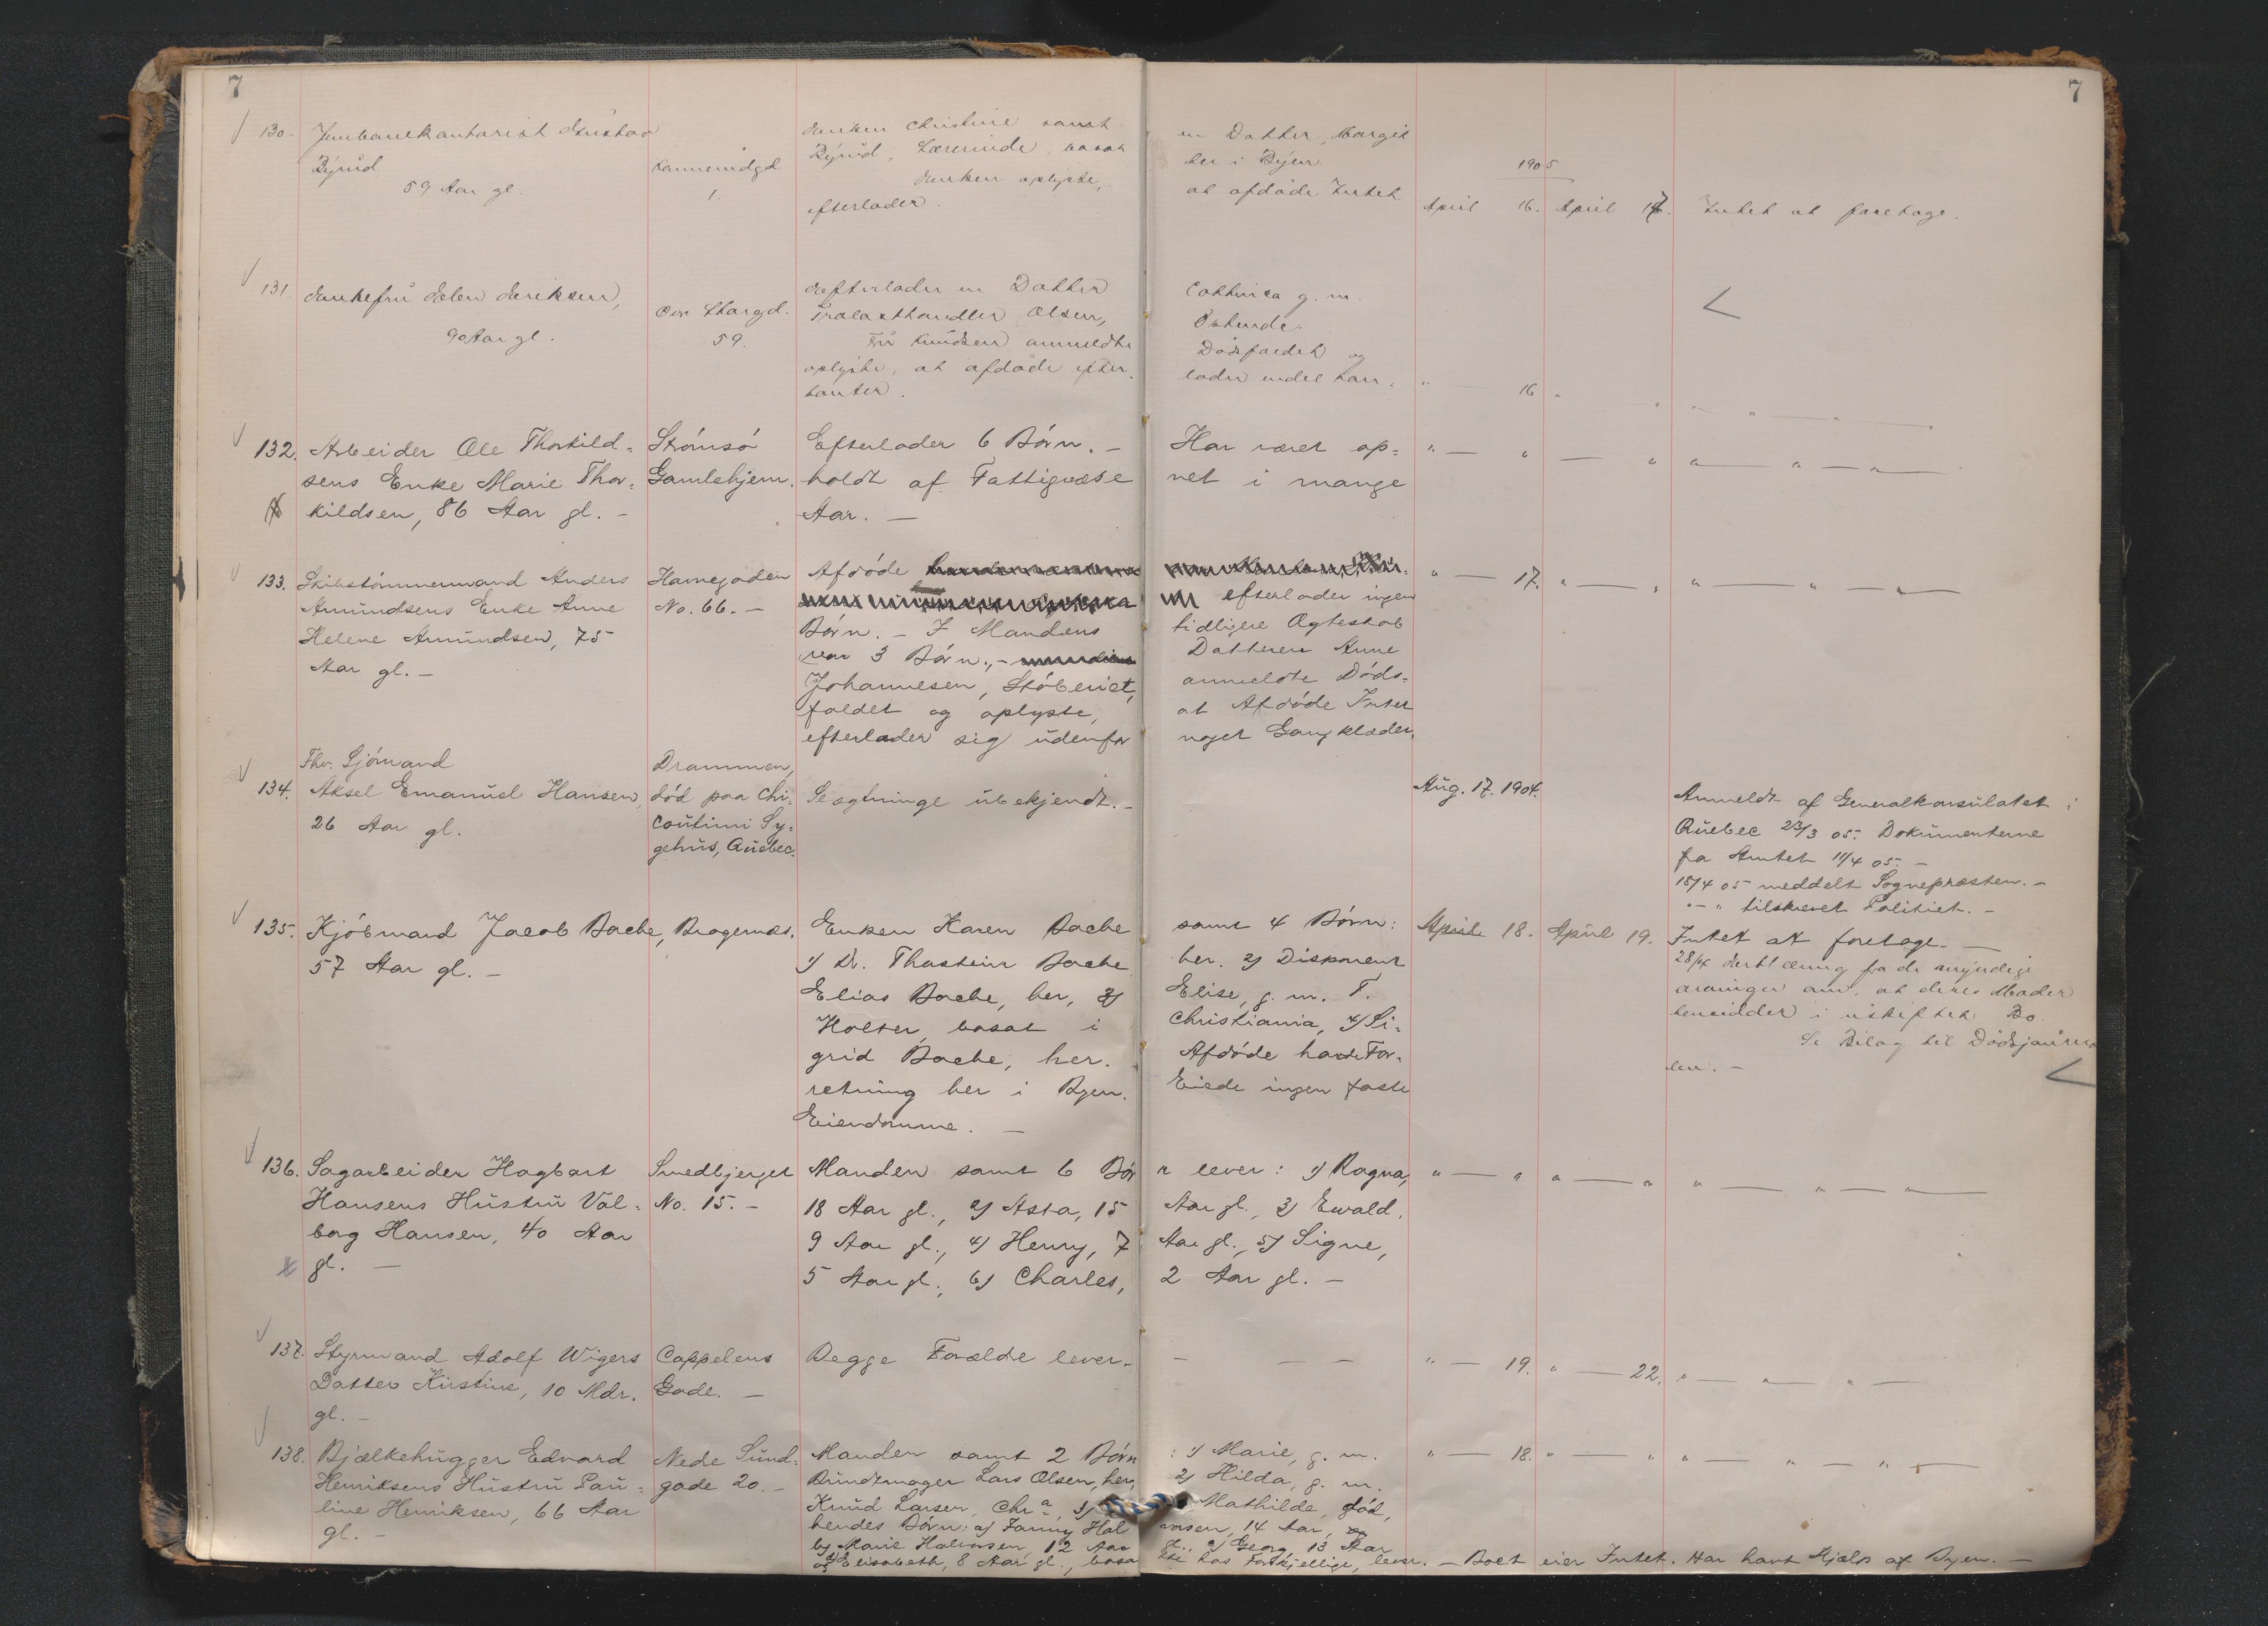 7
7
130. Jernbanekontorist Gustav
Rynid
59 Aar gl.
Tannemdgd
1.
Enken Christine samt
en Datter, Margit
Rynid, Lærerinde, bosat
her i Byen.
Enken oplyste,
at afdøde Intet
efterlader.
1905
April 16. April 17. Intet at foretage.
131. Enkefru Helen Henriksen,
90 Aar gl.
Øvre Storgd.
59.
Efterlader en Datter
Cathinca g. m.
Trælasthandler Olsen,
Østende.
Fru Knudsen anmeldte
Dødsfaldet og
oplyste, at afdøde efter-
lader endel Kon-
tanter.
" 16 " " " " — " —
132. Arbeider Ole Thorkild-
sens Enke Marie Thor-
kildsen, 86 Aar gl. —
Strømsø
Gamlehjem.
Efterlader 6 Børn. —
Har været op-
holdt af Fattigvæse
net i mange
Aar. —
" — " — " " — " — " —
133. Skibstømmermand Anders
Amundsens Enke Anne
Helene Amundsen, 75
Aar gl. —
Havnegaden
No. 66. —
Afdøde
efterlader ingen
Børn. — I Mandens
tidligere Ægteskab
var 3 Børn., —
Datteren Anne
Johannesen, Støberiet,
anmeldte Døds-
faldet og oplyste,
at Afdøde Intet
efterlader sig udenfor
noget Gangklæder.
" — 17. " — " " — " — " —
134. Fhv. Sjømand
Aksel Emanuel Hansen,
26 Aar gl.
Drammen,
død paa Chi-
coutimi Sy-
gehus, Quebec.
Slægtninge ubekjendt. —
Aug. 17. 1904.
Anmeldt af Generalkonsulatet i
Quebec 23/3 05. Dokumenterne
fra Amtet 11/4 05. —
15/4 05 meddelt Sognepræsten. —
" — " tilskrevet Politiet. —
135. Kjøbmand Jacob Bache,
57 Aar gl. —
Bragernæs.
Enken Karen Bache
samt 4 Børn:
1) Dr. Thostein Bache
her. 2) Disponent
Elias Bache, her, 3)
Elise, g. m. T.
Holter, bosat i
Christiania, 4) Si-
grid Bache, her.
Afdøde havde For-
retning her i Byen.
Eiede ingen faste
Eiendomme. —
April 18. April 19. Intet at foretage. —
28/4 Erklæring fra de myndige
arvinger om, at deres Moder
hensidder i uskiftet Bo.
Se Bilag til Dødsjourna
len. —
136. Sagarbeider Hagbart
Hansens Hustru Val-
borg Hansen, 40 Aar
gl. —
Smedbjerget
No. 15. —
Manden samt 6 Bør
n lever: 1) Ragna,
18 Aar gl., 2) Asta, 15
Aar gl., 3) Ewald,
9 Aar gl., 4) Henry, 7
Aar gl., 5) Signe,
5 Aar gl., 6) Charles,
2 Aar gl. —
" — " " — " " — " — " —
137. Styrmand Adolf Wigers
Datter Kirstine, 10 Mdr.
gl. —
Cappelens
Gade. —
Begge Forældre lever. — — — —
" — 19. " — 22. " — " — " —
138. Bjælkehugger Edvard
Henriksens Hustru Pau-
line Henriksen, 66 Aar
gl. —
Nede Sund-
gade 20. —
Manden samt 2 Børn
: 1) Marie, g. m.
Bundtmager Lars Olsen, her,
2) Hilda, g. m.
Knud Larsen, Chr.a, 3)
Mathilde, død,
hendes Børn: a) Fanny Hal
vorsen, 14 Aar,
b) Marie Halvorsen, 12 Aar
gl., c) Georg, 13 Aar
og d) Elisabeth, 8 Aar gl., bosa
tte hos Forskjellige, lever. — Boet eier Intet. Har havt Hjælp af Byen. —
" — 18. " — " " — " — " " —